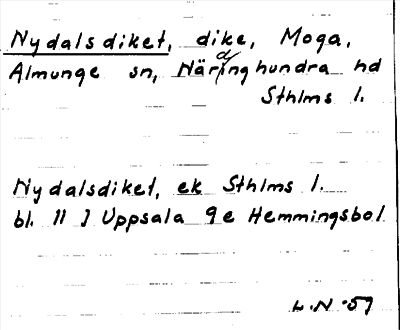 Nydalsdiket, dike, Moga,
Almunge sn, Närdinghundra hd
Sthlms l.
Nydalsdiket, ek Sthlms l.
bl. 11 J Uppsala 9e Hemmingsbol
L.N.-57